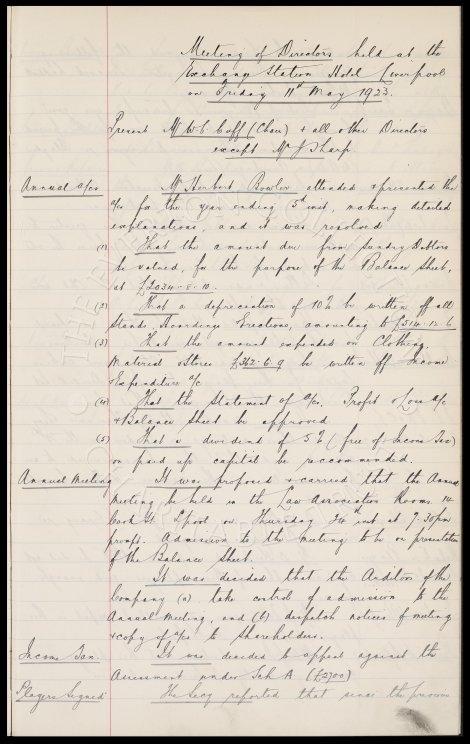 Meeting of Directors held at the
Exchange Station Hotel Liverpool
on Friday 11th May 1923.
Present Mr W.C. Cuff (Chair) & all other Directors
except Mr J Sharp
Annual a/cs Mr Herbert Rowley attended & presented the
a/cs for the year ending 5th inst, making detailed
explanations, and it was resolved
(1) That the amount due from Sundry Debtors
be valued, for the purpose of the Balance Sheet,
at £2034-8-10.
(2) That a depreciation of 10% be written off all
Stands, Hoardings Erections, amounting to £514-12-6
(3) That the amount expended on Clothing,
Material & Stores £362-6-9 be written off Income
& Expenditure a/c
(4) That the Statement of a/cs. Profit & Loss a/c
& Balance Sheet be approved
(5) That a dividend of 5% (free of Income Tax)
on paid up capital be recommended.
Annual Meeting It was proposed & carried that the Annual
Meeting be held in the Law Association Rooms 14
Cook St. L'pool on Thursday 24th inst at 7-30pm
prompt. Admission to the meeting to be on presentation
of the Balance Sheet.
It was decided that the Auditors of the
Company (a) take control of admission to the
Annual Meeting, and (b) despatch notices of meeting
& copy of a/cs to Shareholders.
Income Tax. It was decided to appeal against the
Assessment under Sch A (£2700)
Players Signed The Secy reported that since the previous